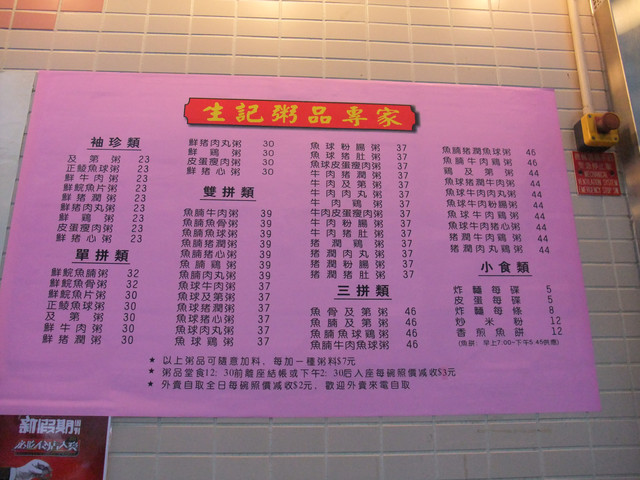 生記粥品專家
袖珍類
及第粥 23
正鯪魚球粥 23
鮮牛肉粥 23
鮮鯇魚片粥 23
鮮豬潤粥 23
鮮豬肉丸粥 23
鮮鷄粥 23
皮蛋瘦肉粥 23
鮮豬心粥 23
單拼類
鮮鯇魚腩粥 32
鮮鯇魚骨粥 32
鮮鯇魚片粥 30
正鯪魚球粥 30
及第粥 30
鮮牛肉粥 30
鮮豬潤粥 30
鮮豬肉丸粥 30
鮮鷄粥 30
皮蛋瘦肉粥 30
鮮豬心粥 30
雙拼類
魚腩牛肉粥 39
魚腩魚骨粥 39
魚腩魚球粥 39
魚腩豬潤粥 39
魚腩豬心粥 39
魚腩鷄粥 39
魚腩肉丸粥 39
魚球牛肉粥 37
魚球及第粥 37
魚球豬潤粥 37
魚球豬心粥 37
魚球肉丸粥 37
魚球鷄粥 37
魚球粉腸粥 37
魚球豬肚粥 37
魚球皮蛋瘦肉粥 37
牛肉豬潤粥 37
牛肉及第粥 37
牛肉肉丸粥 37
牛肉鷄粥 37
牛肉皮蛋瘦肉粥 37
牛肉粉腸粥 37
牛肉豬肚粥 37
豬潤鷄粥 37
豬潤肉丸粥 37
豬潤粉腸粥 37
豬潤豬肚粥 37
三拼類
魚骨及第粥 46
魚腩及第粥 46
魚腩魚球鷄粥 46
魚腩牛肉魚球粥 46
魚腩豬潤魚球粥 46
魚腩牛肉鷄粥 46
鷄及第粥 44
魚球豬潤牛肉粥 44
魚球牛肉及第粥 44
魚球牛肉粉腸粥 44
魚球牛肉鷄粥 44
魚球牛肉豬心粥 44
豬潤牛肉鷄粥 44
豬潤牛肉肉丸粥 44
小食類
炸麵每碟 5
皮蛋每碟 5
炸麵每條 8
炒米粉 12
香煎魚餅 12
(魚餅 早上7:00-下午5:45供應)
★ 以上粥品可隨意加料，每加一種粥料$7元
★ 粥品堂食12:30前離座結帳或下午2:30后入座每碗照價减收$3元
★ 外賣自取全日每碗照價减收$2元，歡迎外賣來電自取
新假期周刊
必吃食店大獎